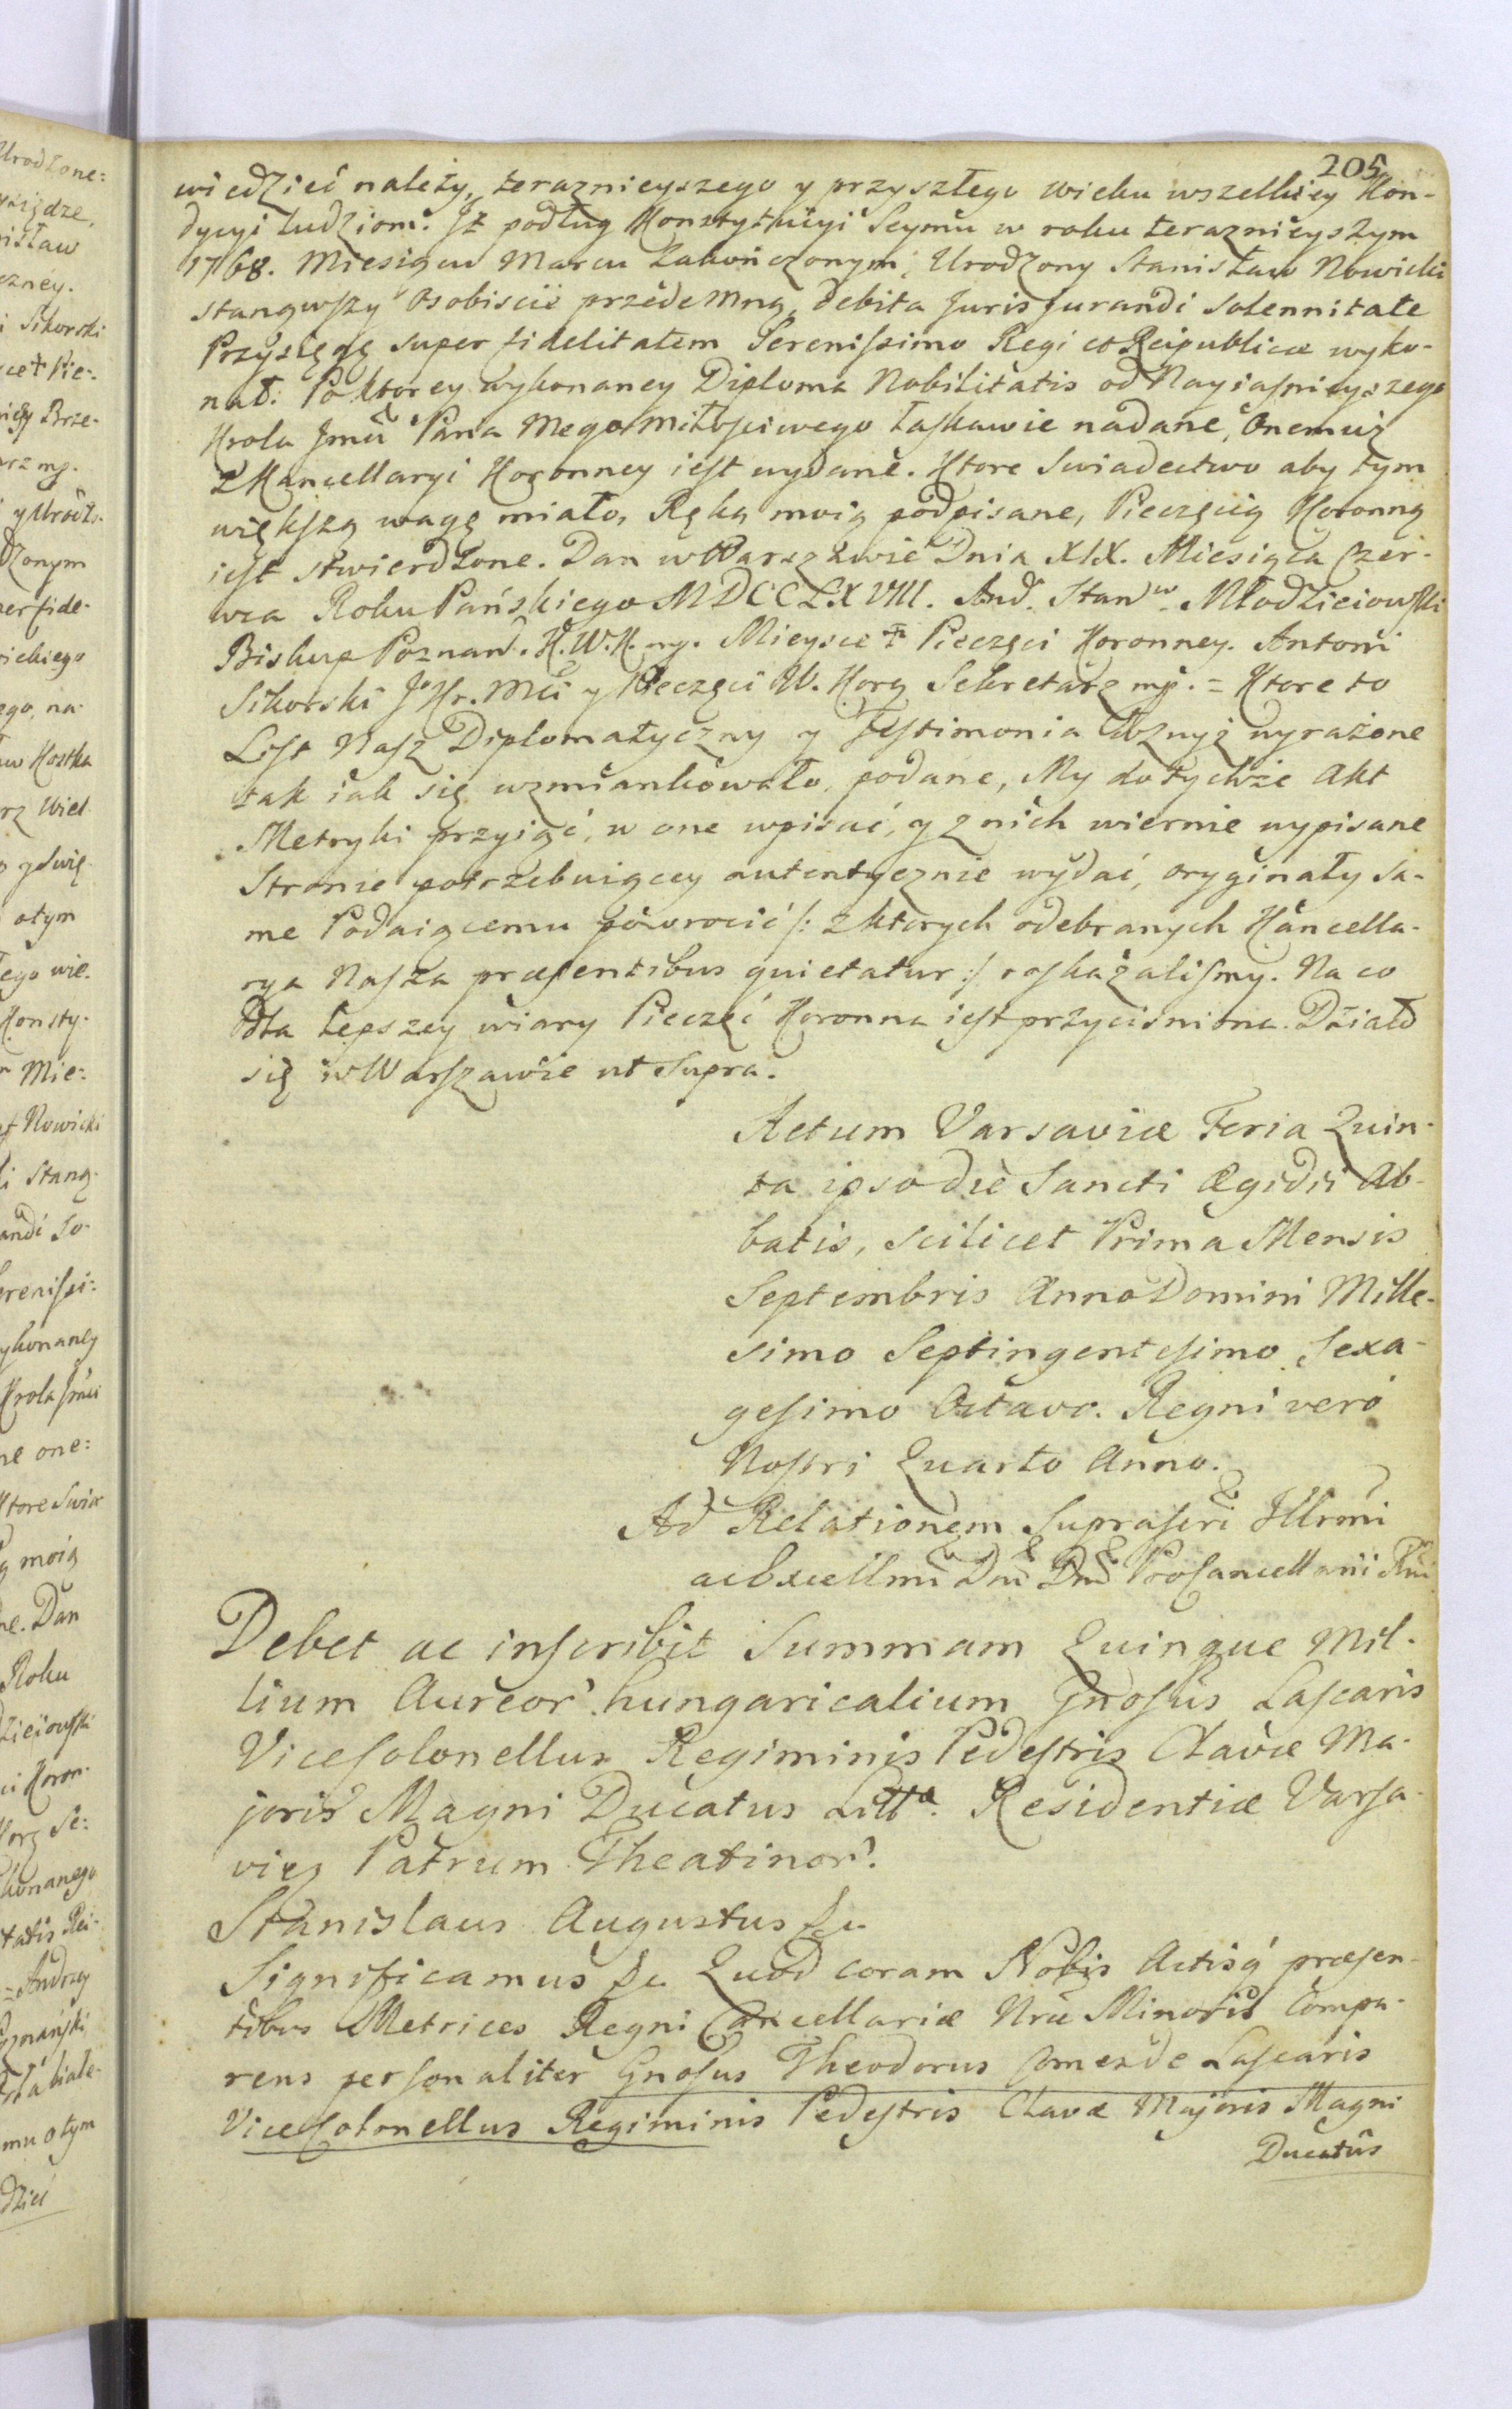 205
wiedzieć należy, teraznieyszego y przyszłego wieku wszelkiey Kon-
dycyi ludziom. Iż podług Konstytucyi Seymu w roku teraznieyszym
1768. Miesiącu Marcu zakończonym, Urodzony Stanisław Nowicki
stanąwszy osobiscie przedemną, debita Jurisjurandi solennitate
Przysięgę super fidelitatem Serenissimo Regi et Reipublicæ wyko-
nał. Po ktorey wykonaney Diploma Nobilitatis od Nayiasnieyszego
Krola Jmći Pana Mego Miłosciwego łaskawie nadane, onemuż
z Kancellaryi Koronney iest wydane. Ktore swiadectwo aby tym
większą wagę miało, Ręką moią podpisane, Pieczęcią Koronną
iest stwierdzone. Dan w Warszawie Dnia XIX. Miesiąca Czer-
wca Roku Pańskiego MDCCLXVIII. And. Stanw. Młodzieiowski
Biskup Poznań. K. W. K. mp. Mieysce ✝ Pieczęci Koronney. Antoni
Sikorski J. Kr. Mći y Pieczęci W. Korę Sekretarz mp. = Ktore to
List Nasz Diplomatyczny y Testimonia wyrażone
tak iak się wzmiankowało, podane, My do tychże Akt
Metryki przyiąć, w one wpisać, y z nich wiernie wypisane
Stronie potrzebuiącey autentycznie wydać, oryginały sa-
me Podaiącemu powrocić /: z ktorych odebranych Kancella-
rya Nasza præsentibus quietatur :/ roskazalismy. Na co
dla lepszey wiary Pieczęć Koronna iest przycisniona. Działo
się w Warszawie ut Supra.
Actum Varsaviæ Feria Quin-
ta ipso die Sancti Ægidii Ab-
batis, scilicet Prima Mensis
Septembris Anno Domini Mille-
simo Septingentesimo Sexa-
gesimo Octavo. Regni vero
Nostri Quarto Anno.
Ad Relationem Suprascri Illrmi
ac Excellmi Dni Dni ProCancellarii Rni
Debet ac inscribit Summam Quinque Mil-
lium Aureor' hungaricalium Gnosus Lascaris
ViceColonellus Regiminis Pedestris Clavæ Ma-
joris Magni Ducatus Litta. Residentiæ Varsa-
vien Patrum Theatinor'.
Stanislaus Augustus &c
Significamus &c Quod coram Nobis Actisq' præsen-
tibus Metrices Regni Cancellariæ Nræ Minoris Compa-
rens personaliter Gnosus Theodorus Comes de Lascaris
ViceColonellus Regiminis Pedestris Clavæ Majoris Magni
Ducatûs